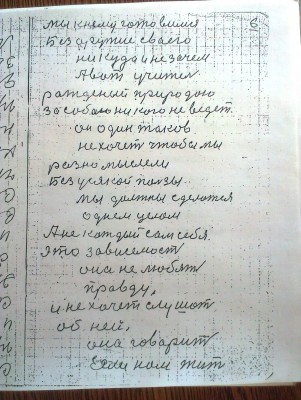 6
мы к нему готовимся
Без другие своего
никуда и не зачем
А вот учител
рожденый природою
За собою никого не ведет.
он один таков
не хочет чтобы мы
разно мыслели
Без усякой ползы
мы должны сделатся
однем целом
А не каждый сам себя.
это зависемост
она не любят
правду,
и не хочет слушот
об ней,
она говарит
Если ком жит